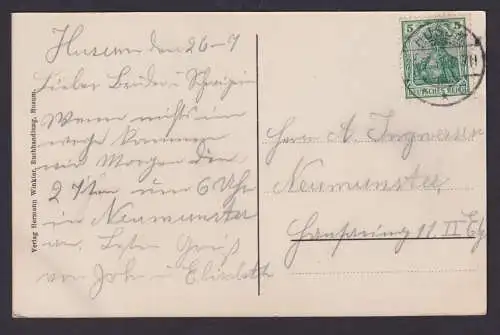 Husum den 26-9
Lieber Bruder u Schwägerin
Wenn nichts im
wege kommen
wir Morgen den
27ten um 6 Uhr
in Neumünster
an. Besten Gruß
von Joh u Elisabeth
Verlag Hermann Winkler, Buchhandlung, Husum.
5
5
DEUTSCHES REICH
HUSUM
Herrn A. Ingwersen
Neumünster
Hansaring 11 II Etg